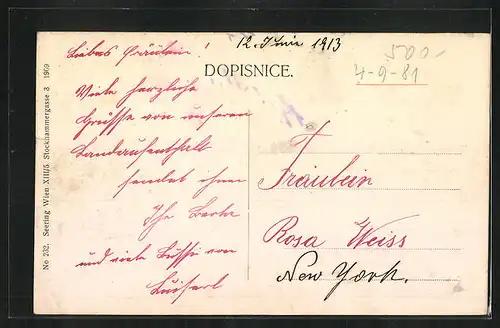 Liebes Fräulein!
12. Juni 1913
500-
4-9-81
DOPISNICE.
Viele herzliche
Grüsse von unseren
Landaufenthalt
sendet ihnen
Ihr Berta
und viele Bussi von
Luiserl
Fräulein
Rosa Weiss
New York.
No 232. Seeting Wien XIII/5 Stockhammergasse 3 1909